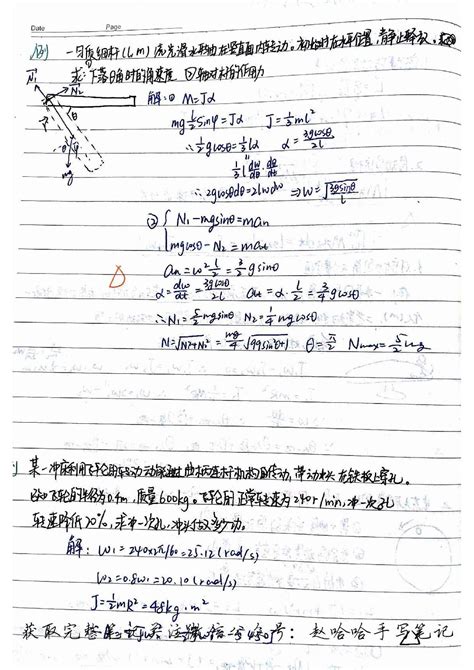 Date Page
例) 一匀质细杆(l,m)绕光滑水平轴在竖直面内转动。初始时在水平位置,静止释放,
求:①下落θ角时的角速度 ②轴对杆的作用力
N₁ N₂
θ
mg
解:① M=Jα
mg½sinφ=Jα J=⅓ml²
∴½gcosθ=⅓lα α=3gcosθ/2l
⅓l dω/dθ · dθ/dt
∴3gcosθdθ=2lωdω ⇒ω=√(3gsinθ/l)
② { N₁-mgsinθ=man
mgcosθ-N₂=mat
an=ω²l/2=3/2gsinθ
α=dω/dt=3gcosθ/2l at=α·l/2=3/4gcosθ
∴N₁=5/2mgsinθ N₂=1/4mgcosθ
N=√(N₁²+N₂²)=mg/4√(99sin²θ+1) θ=π/2 Nmax=5/2mg
某一冲床利用飞轮的转动动能通过曲柄连杆机构的传动,带动冲头在铁板上穿孔。
已知飞轮的半径为0.4m,质量600kg。飞轮的正常转速为240r/min,冲一次孔
转速降低20%,求冲一次孔,冲头做多少功。
解:ω₁=240×2π/60=25.12(rad/s)
ω₂=0.8ω₁=20.10(rad/s)
J=½mR²=48kg·m²
获取完整笔记关注微信公众号:赵哈哈手写笔记